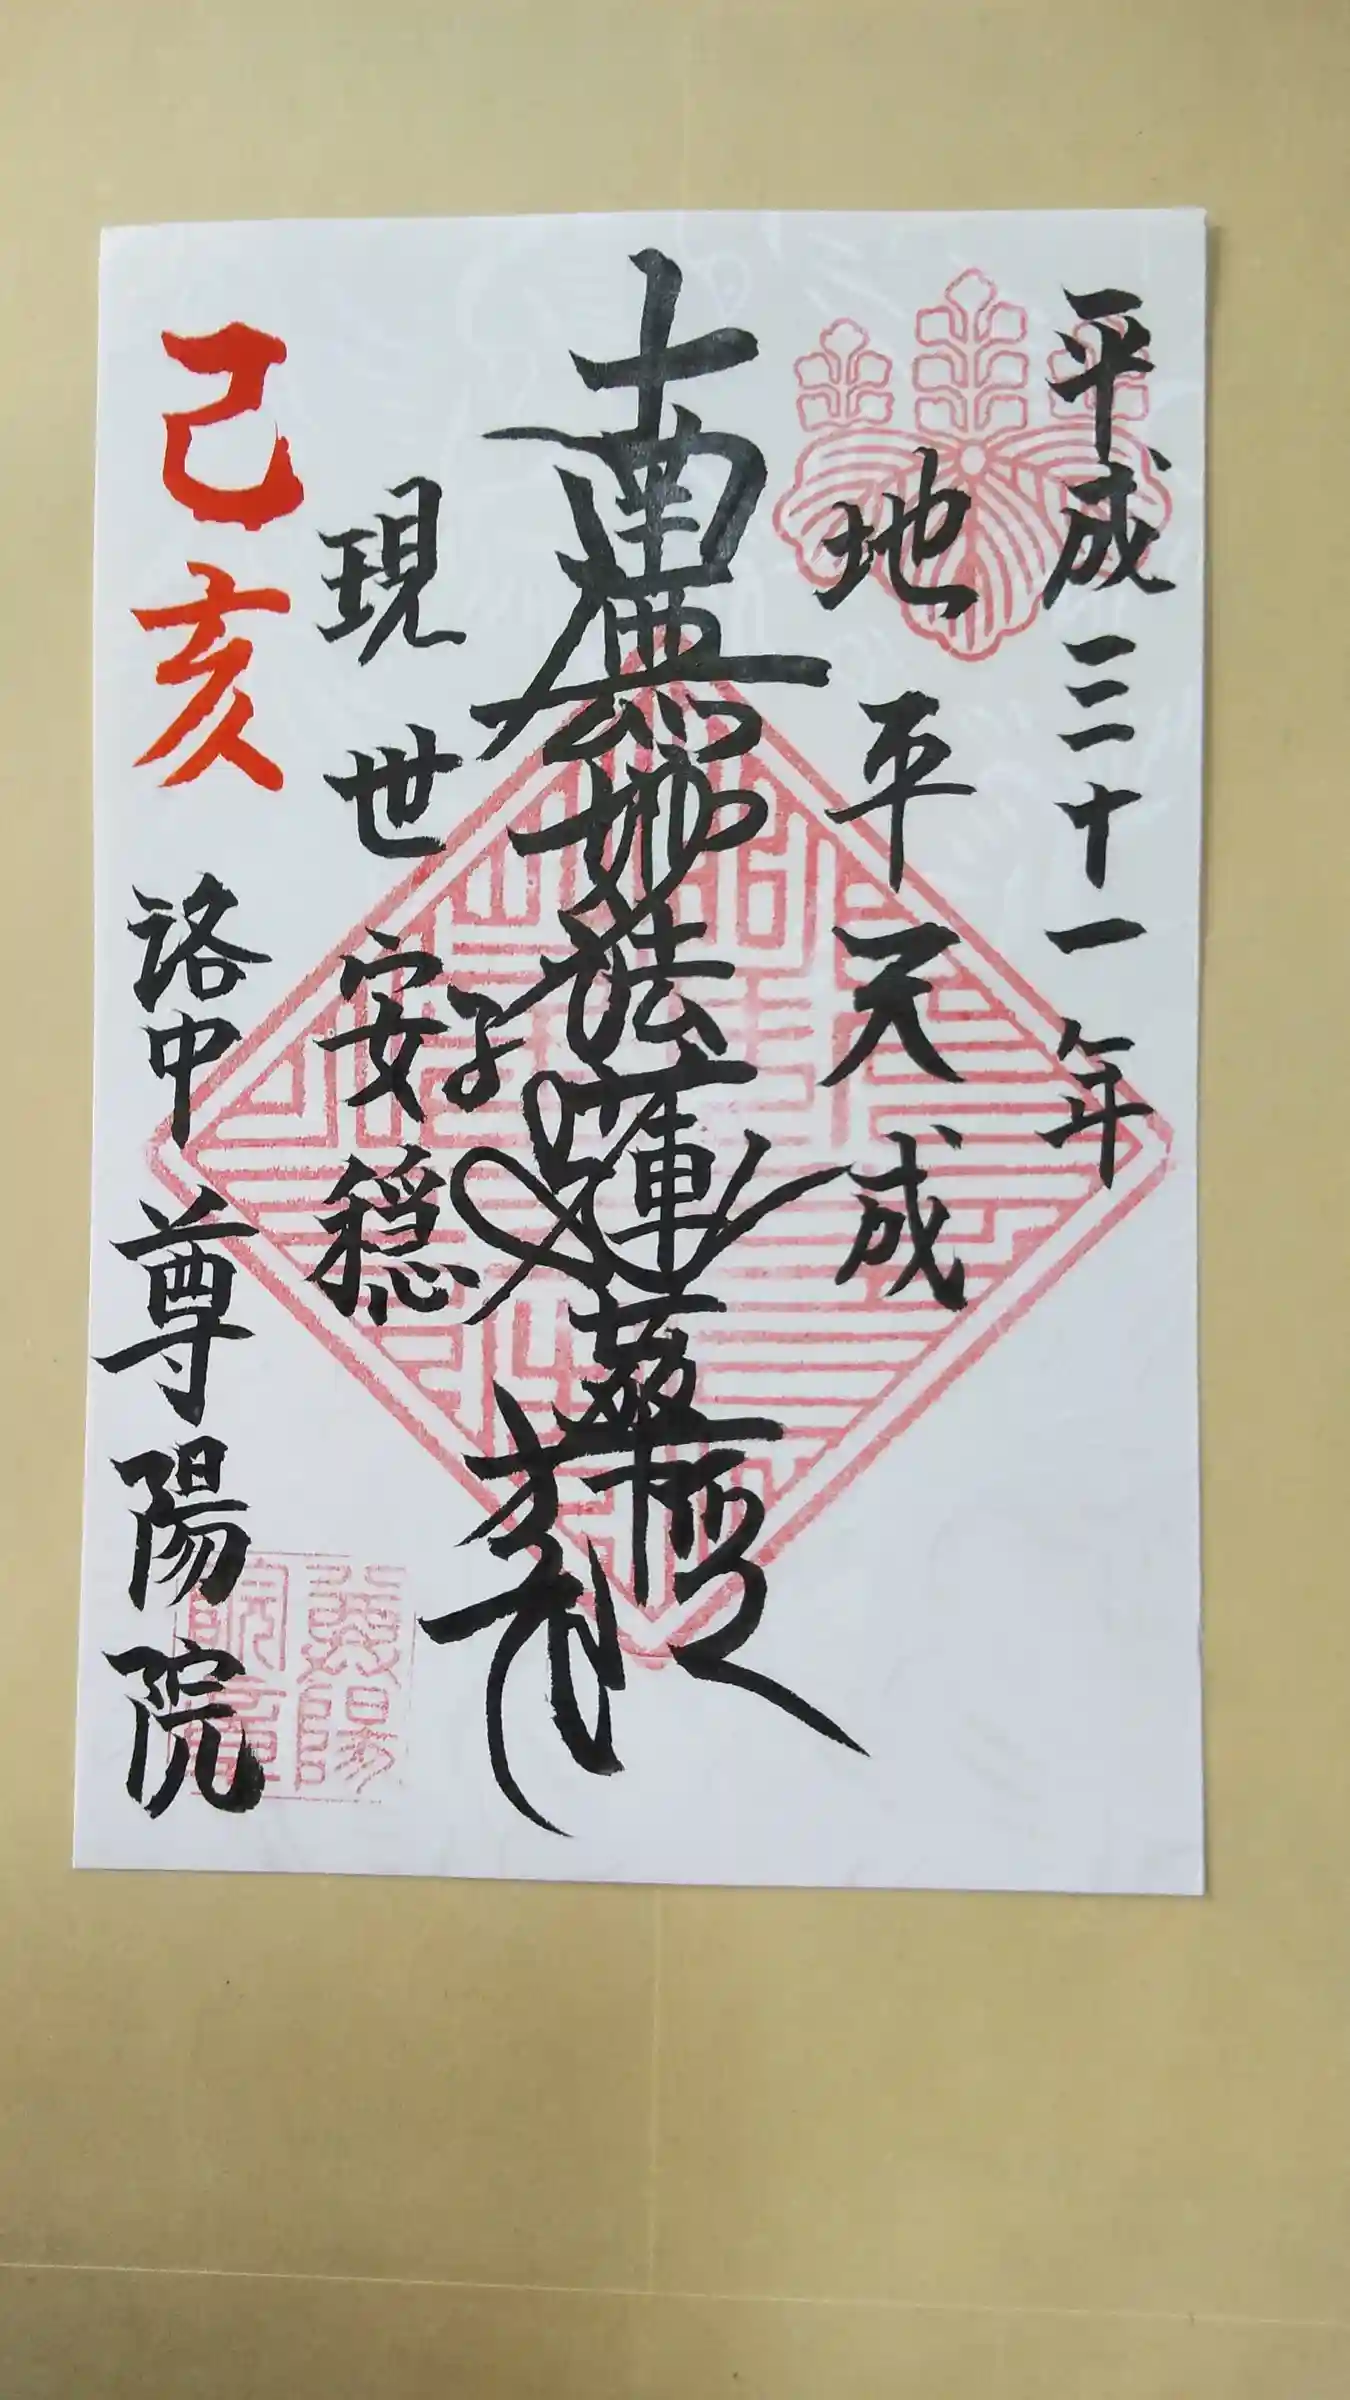 平成三十一年
地平天成
南無妙法蓮華経
現世安穏
己亥 洛中 尊陽院